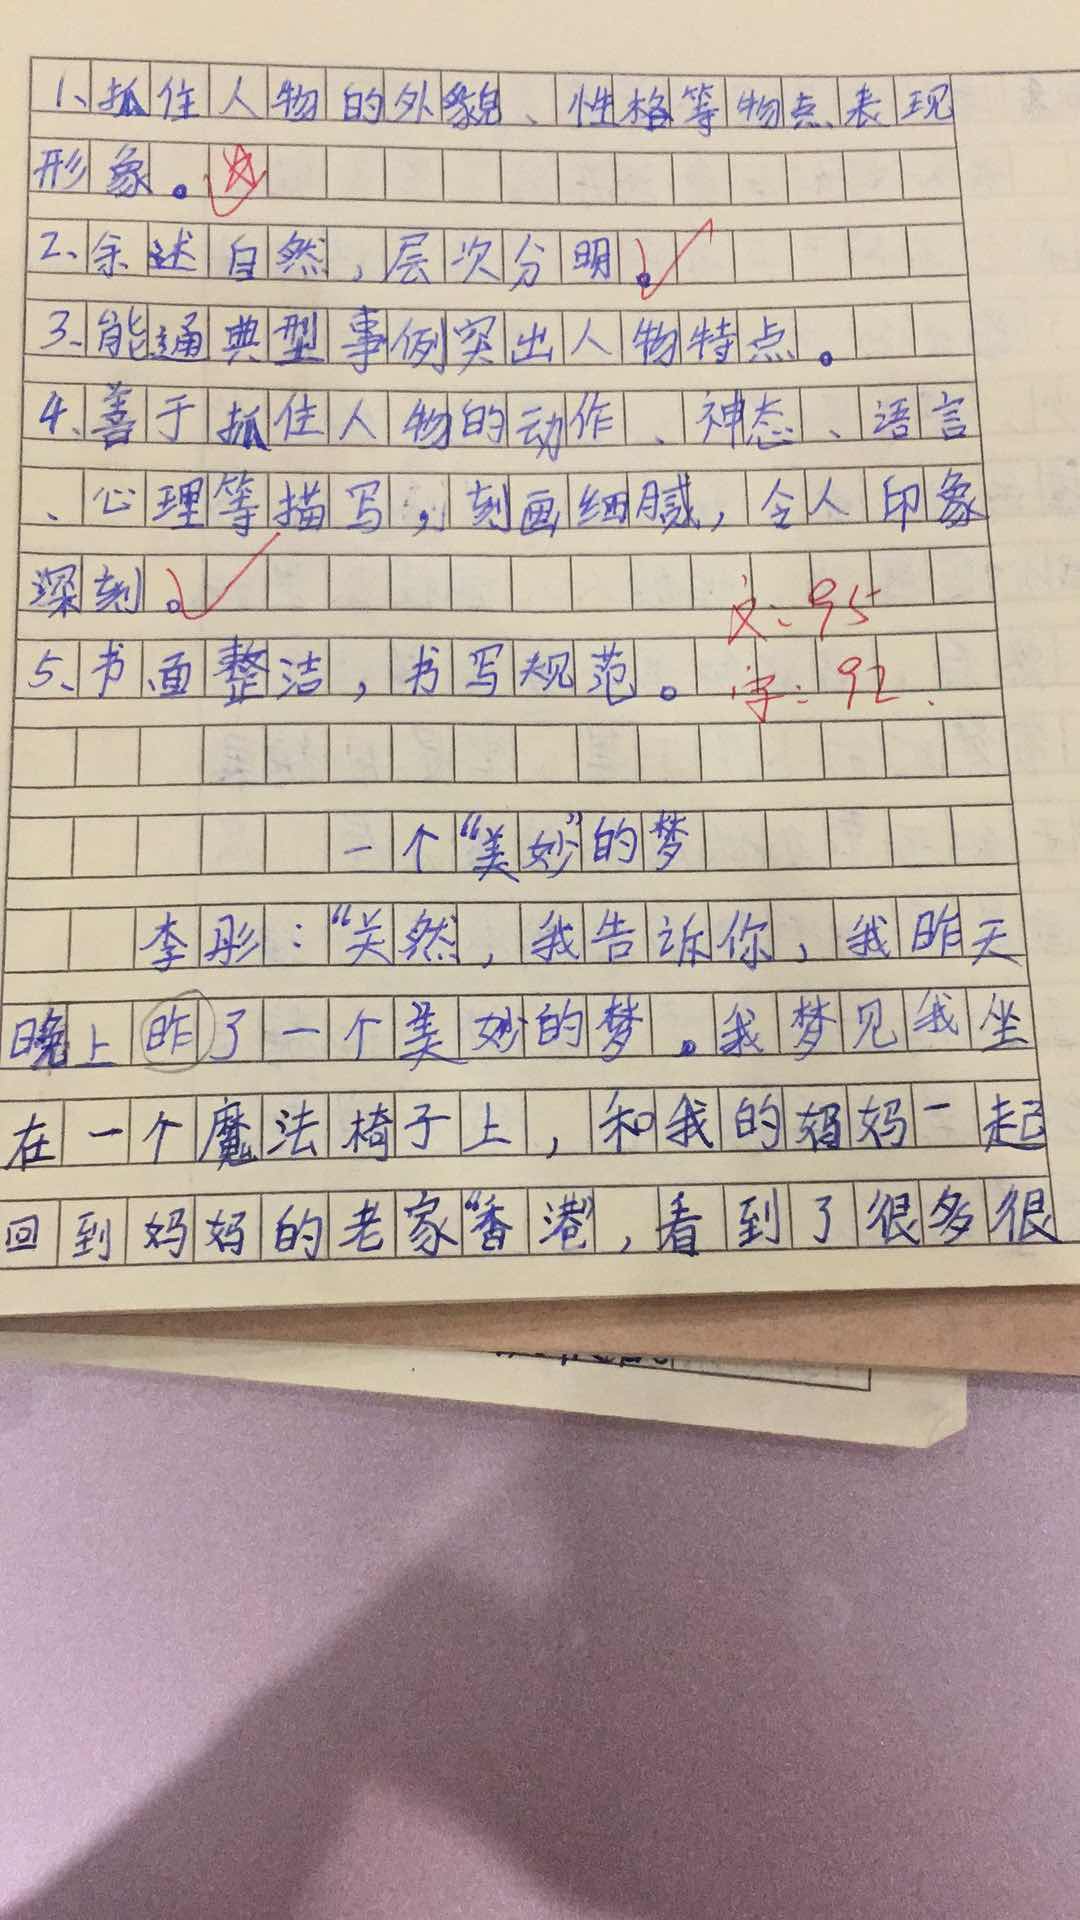 1、抓住人物的外貌、性格等物点表现
形象。
2、余述自然,层次分明。
3、能通典型事例突出人物特点。
4、善于抓住人物的动作、神态、语言
、心理等描写,刻画细腻,令人印象
深刻。
文:95
5、书面整洁,书写规范。
字:92.
一个“美妙”的梦
李彤:“关然,我告诉你,我昨天
晚上昨了一个美妙的梦。我梦见我坐
在一个魔法椅子上,和我的妈妈一起
回到妈妈的老家“香港”,看到了很多很